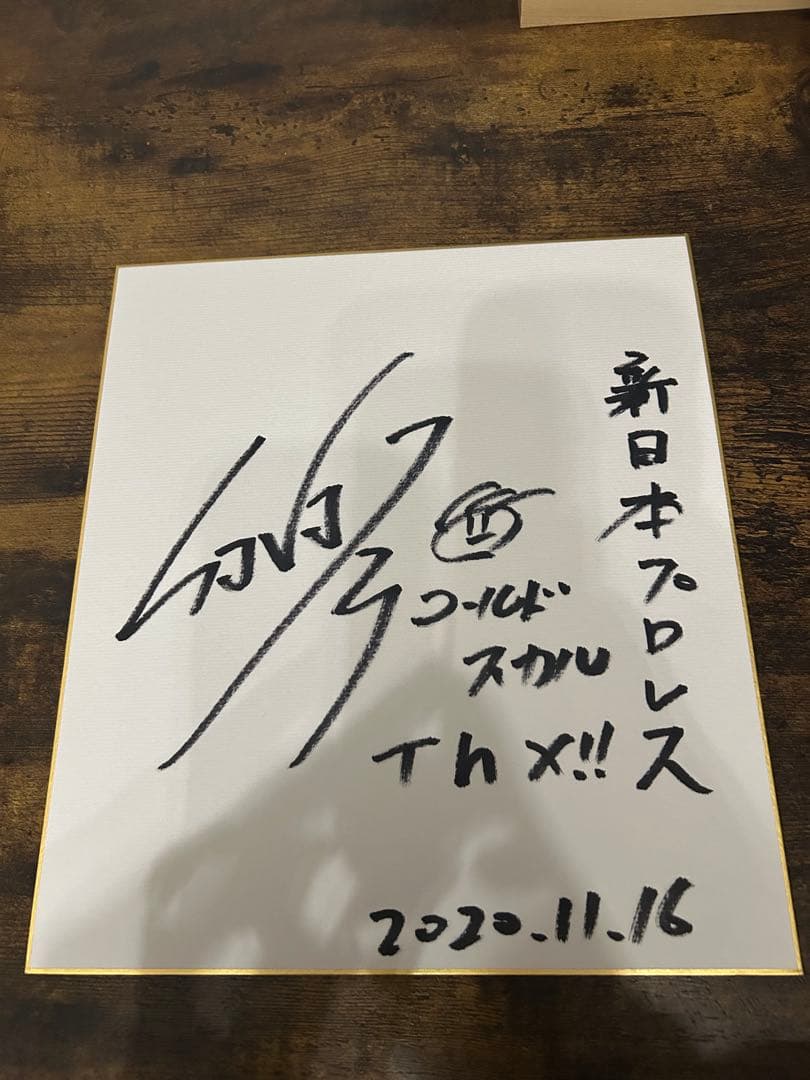 新日本プロレス
コールド
スカル
Thx!!
2020.11.16